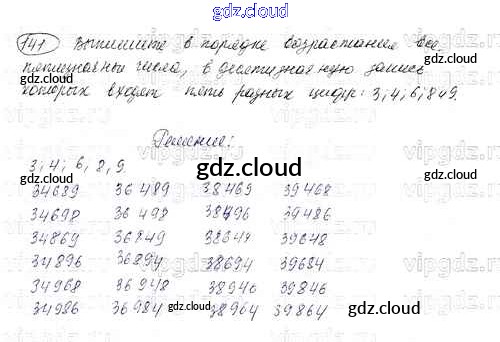 gdz.cloud
141 Выпишите в порядке возрастания все
пятизначные числа, в десятизначную запись
которых входят пять разных цифр: 3; 4; 6; 8 и 9.
Решение:
gdz.cloud
3; 4; 6, 8, 9.
34689 36489 38469 39468
34698 36498 38496 39486
34869 36849 38649 39648
34896 36894 38694 39684
34968 36948 38946 39846
34986 36984 gdz.cloud 38964 39864
gdz.cloud